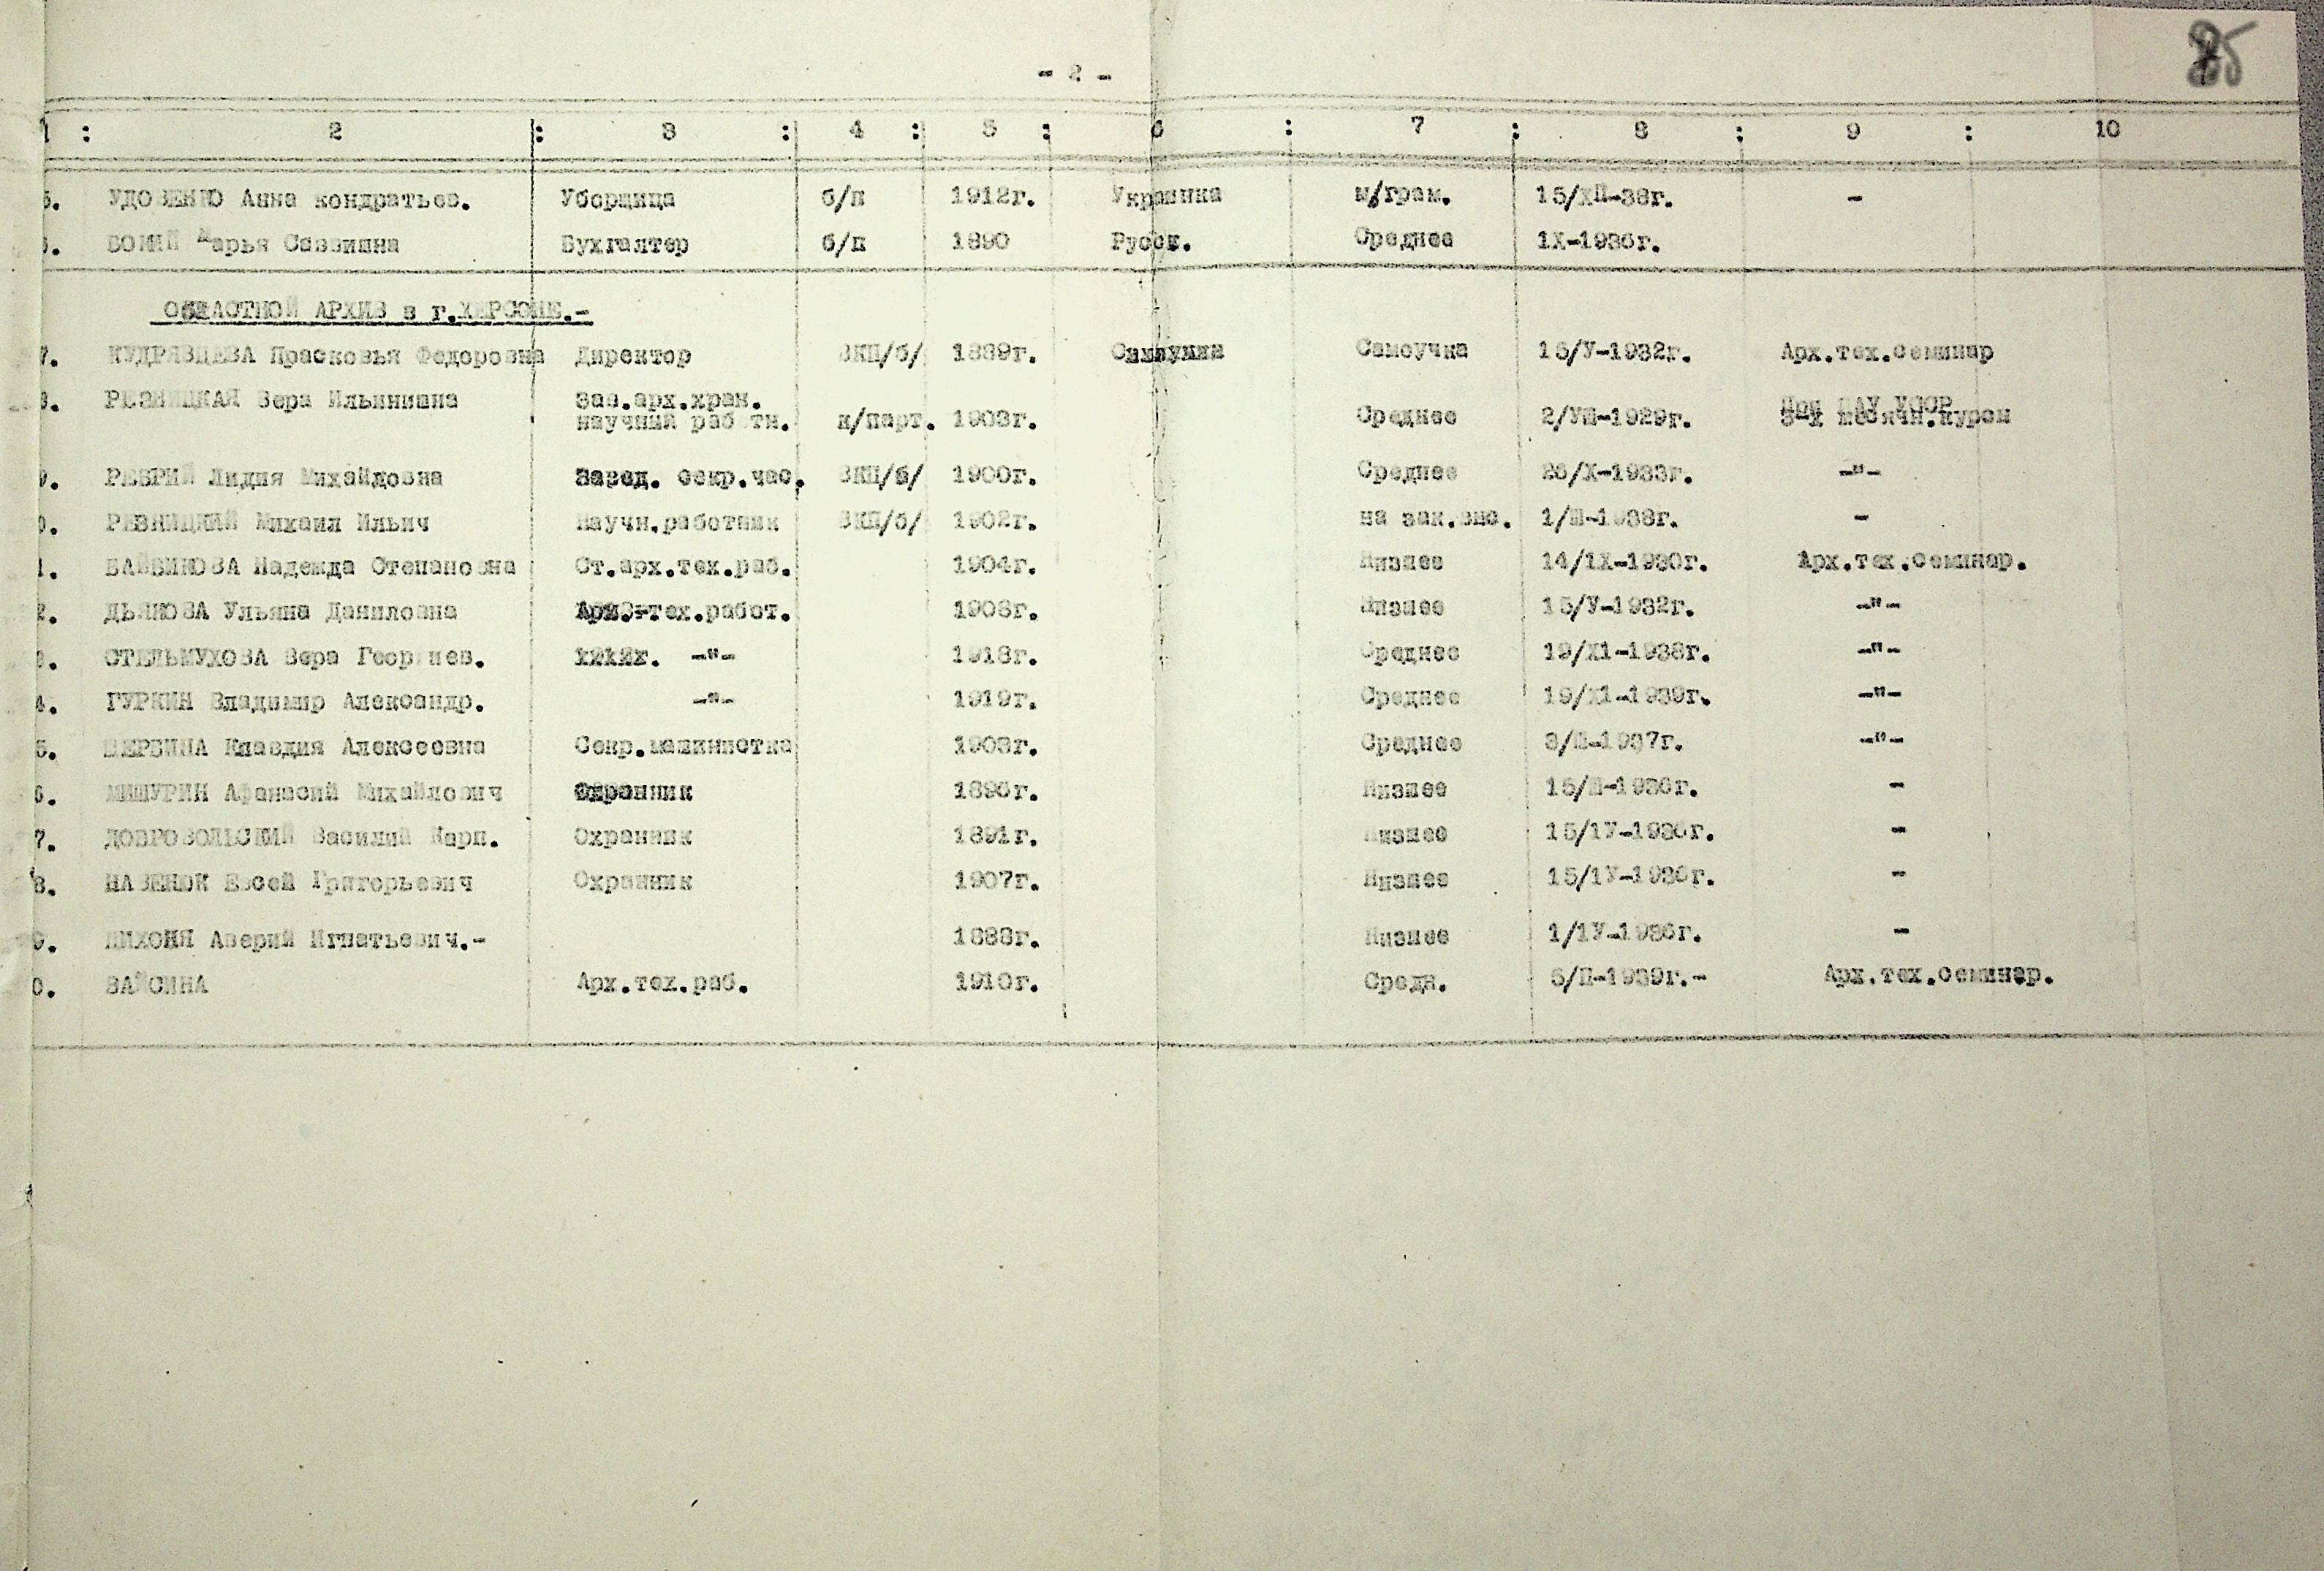 - 2 -
1 : 2 : 3 : 4 : 5 : 6 : 7 : 8 : 9 : 10
5. УДОВЕНКО Анна кондратьев. Уборщица б/п 1912г. Украинка м/грам. 15/ХП-38г. -
6. Марья Саввишна Бухгалтер б/п 1890 Русск. Среднее 1Х-1936г.
ОБЛАСТНОЙ АРХИВ в г.ХЕРСОНЕ.-
7. КУДРЯВЦЕВА Прасковья Федоровна Директор ВКП/б/ 1889г. Самоучка 15/У-1932г. Арх.тех.семинар
8. РЕЗНИЦКАЯ Вера Ильинишна Зав.арх.хран.
научный раб тн. к/парт. 1903г. Среднее 2/УШ-1929г. При ЦАУ УССР
3-х месячн.курсы
9. РЕБРИЙ Лидия Михайловна Завед. секр.час. ВКП/б/ 1900г. Среднее 26/Х-1933г. -"-
0. РЕЗНИЦКИЙ Михаил Ильич Научн.работник ВКП/б/ 1902г. на зак.выс. 1/Ш-1938г. -
1. Надежда Степановна Ст.арх.тех.раб. 1904г. Низшее 14/1Х-1930г. Арх.тех.семинар.
2. ДЬЯКОВА Ульяна Даниловна Арх.-тех.работ. 1908г. Низшее 15/У-1932г. -"-
3. СТЕЛЬМУХОВА Вера Георгиев. -"- 1918г. Среднее 19/Х1-1938г. -"-
4. ГУРКИН Владимир Александр. -"- 1919г. Среднее 19/Х1-1939г. -"-
5. Клавдия Алексеевна Секр.машинистка 1903г. Среднее -1937г. -"-
6. МИШУРИН Афанасий Михайлович Охранник 1896г. Низшее -1936г. -
7. ДОБРОВОЛЬСКИЙ Василий Карп. Охранник 1891г. Низшее 15/1У-1936г. -
8. НАЗЕНОК Евсей Григорьевич Охранник 1907г. Низшее 15/1У-1936г. -
9. Аверий Игнатьевич.- 1888г. Низшее 1/1У-1936г. -
0. Арх.тех.раб. 1910г. Средн. 5/П-1939г.- Арх.тех.семинар.